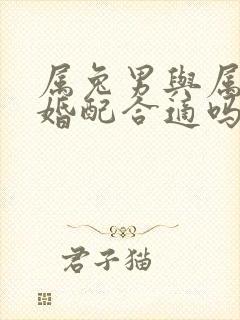 属兔男與属
婚配合適吗
君子猫